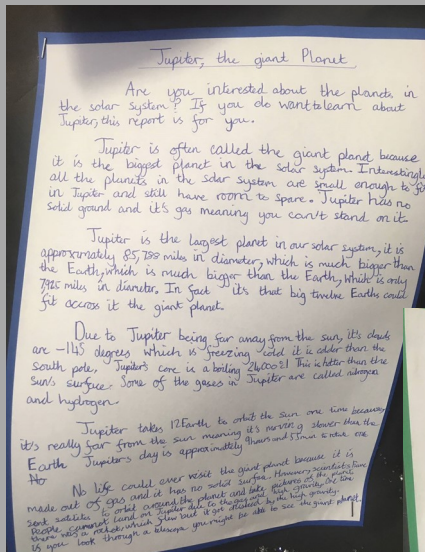 Jupiter, the giant Planet
Are you interested about the planets in
the solar system? If you do want to learn about
Jupiter, this report is for you.
Jupiter is often called the giant planet because
it is the biggest planet in the solar system. Interestingly
all the planets in the solar system are small enough to fit
in Jupiter and still have room to spare. Jupiter has no
solid ground and it's gas meaning you can't stand on it.
Jupiter is the largest planet in our solar system, it is
approximately miles in diameter, which is much bigger than
the Earth, which is much bigger than the Earth, which is only
miles in diameter. In fact it's that big twelve Earths could
fit accross it the giant planet.
Due to Jupiter being far away from the sun, it's clouds
are -145 degrees which is freezing cold it is colder than the
south pole. Jupiter's core is a boiling This is hotter than the
sun's surface. Some of the gases in Jupiter are called nitrogen
and hydrogen.
Jupiter takes 12 Earth to orbit the sun one time because
it's really far from the sun meaning it's moving slower than the
Earth Jupiter's day is approximately 9 hours and 55 min to rotate one
No
No life could ever visit the giant planet because it is
made out of gas and it has no solid surface. However, scientists have
sent satilites to orbit around the planet and take pictures of the planet.
People cannot land on Jupiter due to the gas and high gravity. One time
there was a rocket which flew but it got crushed by the high gravity.
is you look through a telescope you might be able to see the giant planet.